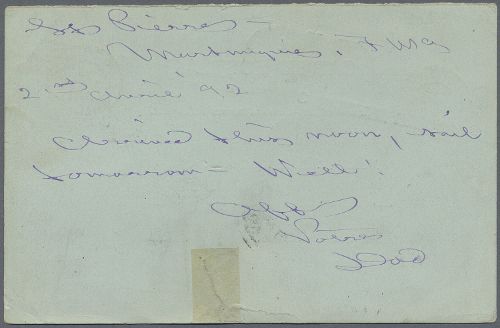 SS Pierres —
Martinique, F W I
2nd April 92
Arrived this noon, sail
tomorrow = Well!
Aff
Yours
Dad